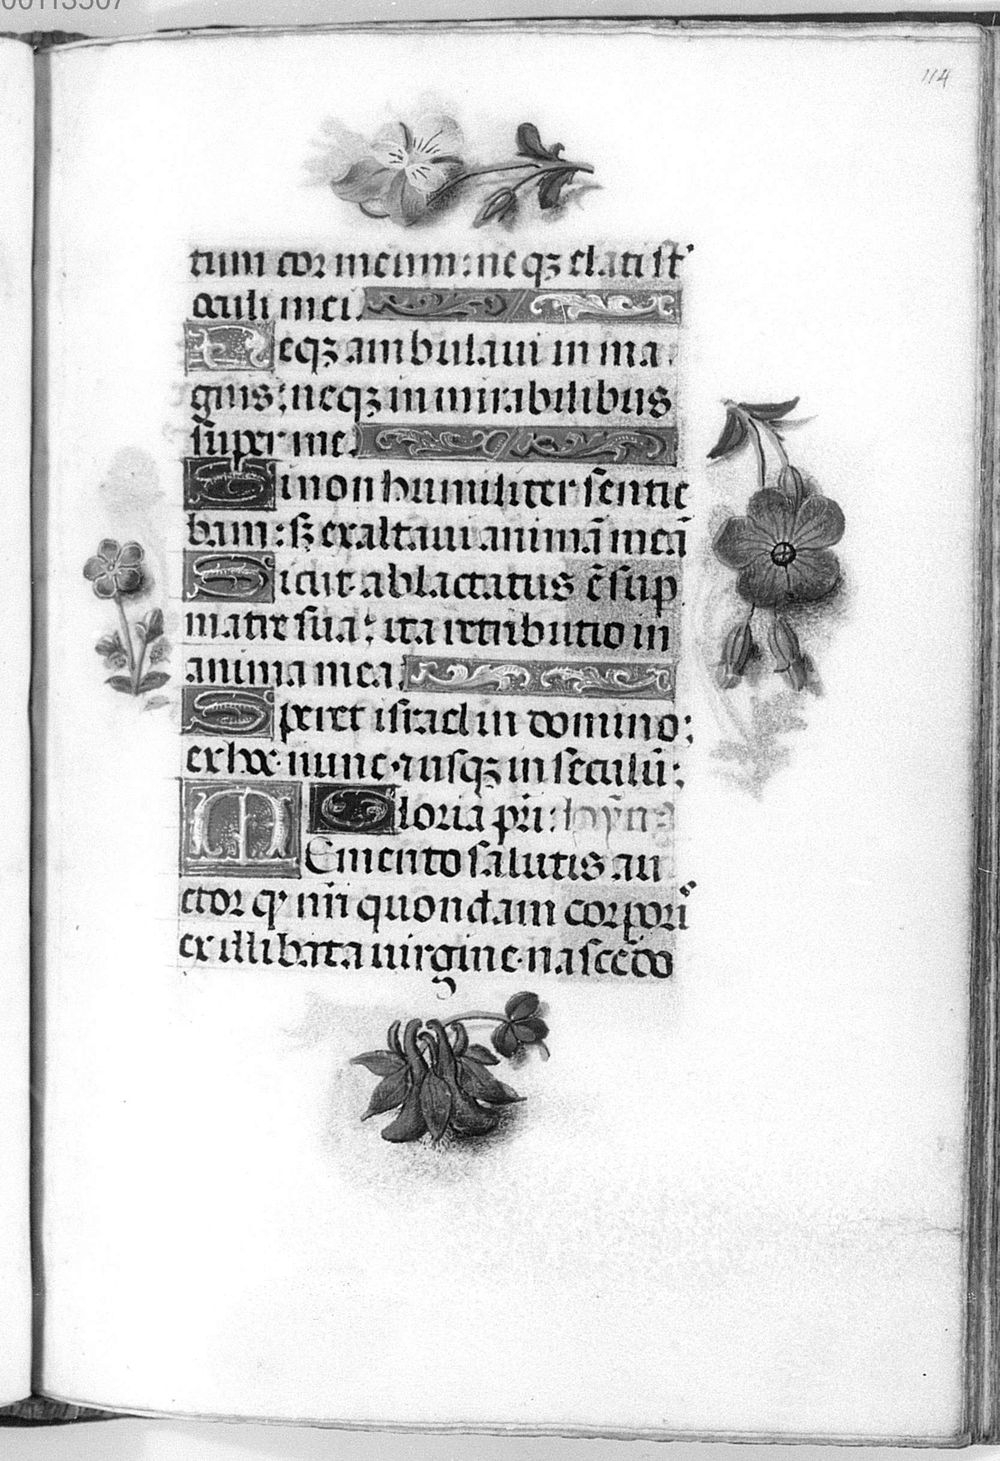 00113507
114
tum cor meum: neqz elati st'
oculi mei.
Neqz ambulaui in ma
gnis: neqz in mirabilibus
super me.
Si non humiliter sentie
bam: sz exaltaui animā meā
Sicut ablactatus ē sup
matre sua: ita retributio in
anima mea.
Speret israel in domino:
ex hoc nunc ⁊ usqz in seculū:
Gloria pri: hyṁꝰ
Memento salutis au
ctor qꝫ nr̄i quondam corporis
ex illibata uirgine nascēdo